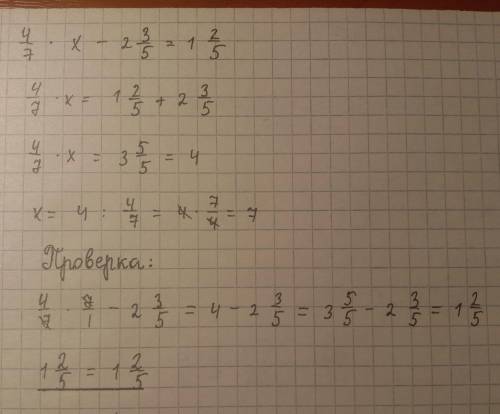 4/7 · x - 2 3/5 = 1 2/5
4/7 · x = 1 2/5 + 2 3/5
4/7 · x = 3 5/5 = 4
x = 4 : 4/7 = 4 · 7/4 = 7
Проверка:
4/7 · 7/1 - 2 3/5 = 4 - 2 3/5 = 3 5/5 - 2 3/5 = 1 2/5
1 2/5 = 1 2/5